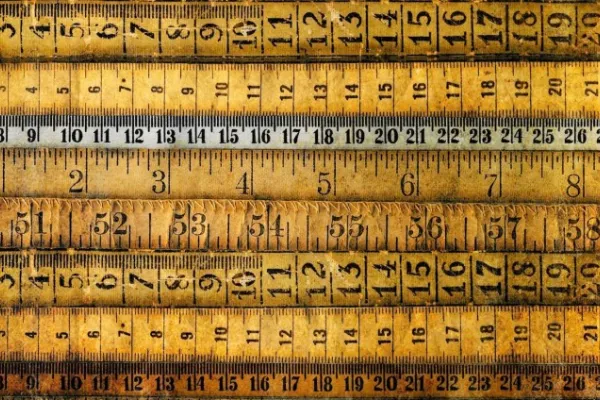 3 4 5 6 7 8 9 10 11 12 13 14 15 16 17 18 19 20
4 5 6 7 8 9 10 11 12 13 14 15 16 17 18 19 20 21
8 9 10 11 12 13 14 15 16 17 18 19 20 21 22 23 24 25 26
2 3 4 5 6 7 8
51 52 53 54 55 56 57 58
3 4 5 6 7 8 9 10 11 12 13 14 15 16 17 18 19 20
4 5 6 7 8 9 10 11 12 13 14 15 16 17 18 19 20 21
8 9 10 11 12 13 14 15 16 17 18 19 20 21 22 23 24 25 26